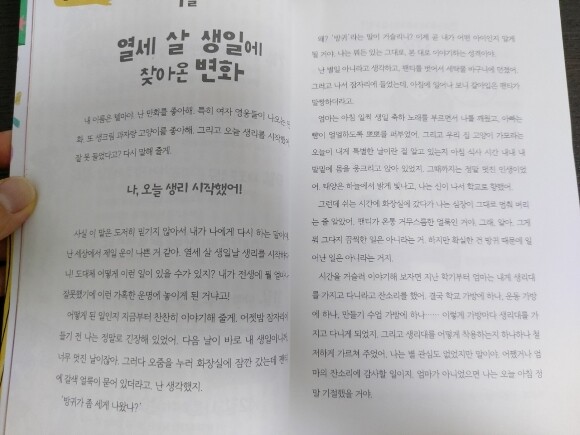 열세 살 생일에
찾아온 변화
내 이름은 뗄마야. 난 만화를 좋아해. 특히 여자 영웅들이 나오는
화. 또 생크림 과자랑 고양이를 좋아해. 그리고 오늘 생리를 시작했
잘 못 들었다고? 다시 말해 줄게.
나, 오늘 생리 시작했어!
사실 이 말은 도저히 믿기지 않아서 내가 나에게 다시 하는 말이야
난 세상에서 제일 운이 나쁜 거 같아. 열세 살 생일날 생리를 시작하
니! 도대체 어떻게 이런 일이 있을 수가 있지? 내가 전생에 뭘
잘못했기에 이런 가혹한 운명에 놓이게 된 거냐고!
어떻게 된 일인지 지금부터 찬찬히 이야기해 줄게. 어젯밤 잠자리
들기 전 나는 정말로 긴장해 있었어. 다음 날이 바로 내 생일이니
너무 멋진 날이잖아. 그러다 오줌을 누러 화장실에 잠깐 갔는데 팬
에 갈색 얼룩이 묻어 있더라고. 난 생각했지.
'방귀가 좀 세게 나왔나?'
왜? '방귀'라는 말이 거슬리니? 이제 곧 내가 어떤 아이인지 알게
될 거야. 나는 뭐든 있는 그대로, 본 대로 이야기하는 성격이야.
난 별일 아니라고 생각하고, 팬티를 벗어서 세탁물 바구니에 던졌어.
그러고 나서 잠자리에 들었는데, 아침에 일어나 보니 갈아입은 팬티가
말짱하더라고.
엄마는 아침 일찍 생일 축하 노래를 부르면서 나를 깨웠고, 아빠는
뺨이 얼얼하도록 뽀뽀를 퍼부었어. 그리고 우리 집 고양이 가토라는
오늘이 내게 특별한 날이란 걸 알고 있는지 아침 식사 시간 내내 내
발밑에 몸을 웅크리고 앉아 있었지. 그때까지는 정말 멋진 인생이었
어. 태양은 하늘에서 밝게 빛나고, 나는 신이 나서 학교로 향했어.
그런데 쉬는 시간에 화장실에 갔다가 나는 심장이 그대로 멎어 버리
는 줄 알았어. 팬티가 온통 거무스름한 얼룩인 거야. 그래, 알아. 그게
뭐 그다지 끔찍한 일은 아니라는 거. 하지만 확실한 건 방귀 때문에 일
어난 일은 아니라는 거지.
시간을 거슬러 이야기해 보자면 지난 학기부터 엄마는 내게 생리대
를 가지고 다니라고 잔소리를 했어. 결국 학교 가방에 하나, 운동 가방
에 하나, 만들기 수업 가방에 하나…… 이렇게 가방마다 생리대를 가
지고 다니게 되었지. 그리고 생리대를 어떻게 착용하는지 하나하나 철
저하게 가르쳐 주었어. 나는 별 관심도 없었지만 말이야. 어쨌거나 엄
마의 잔소리에 감사할 일이지. 엄마가 아니었으면 나는 오늘 아침 정
말 기절했을 거야.